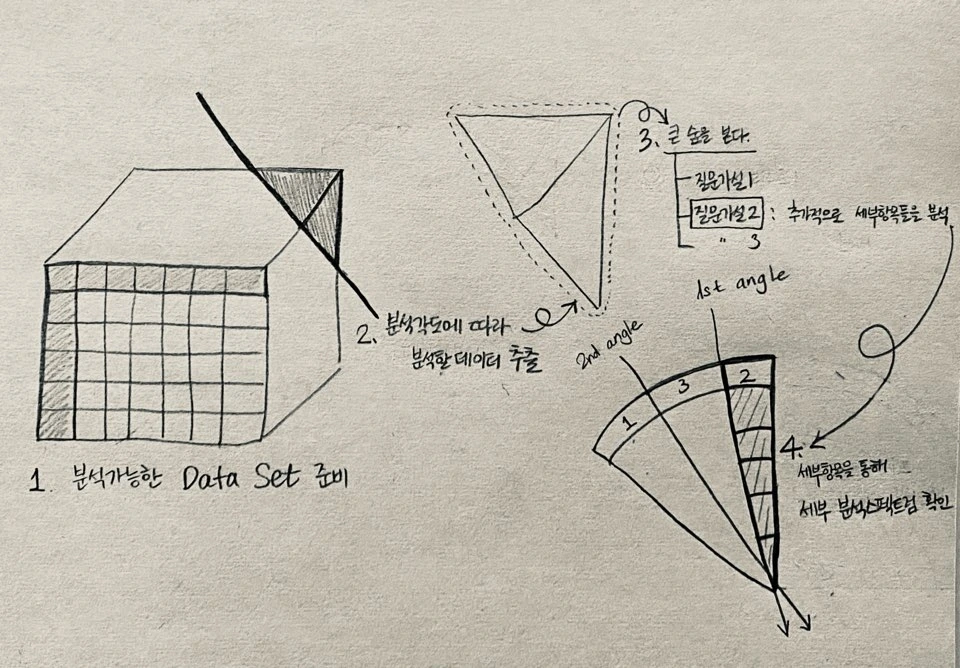 1. 분석가능한 Data Set 준비
2. 분석각도에 따라
분석할 데이터 추출
3. 큰 숲을 본다.
질문가설1
질문가설2 : 추가적으로 세부항목들을 분석
〃 3
1st angle
2nd angle
1
3
2
4.
세부항목을 통해
세부 분석스펙트럼 확인